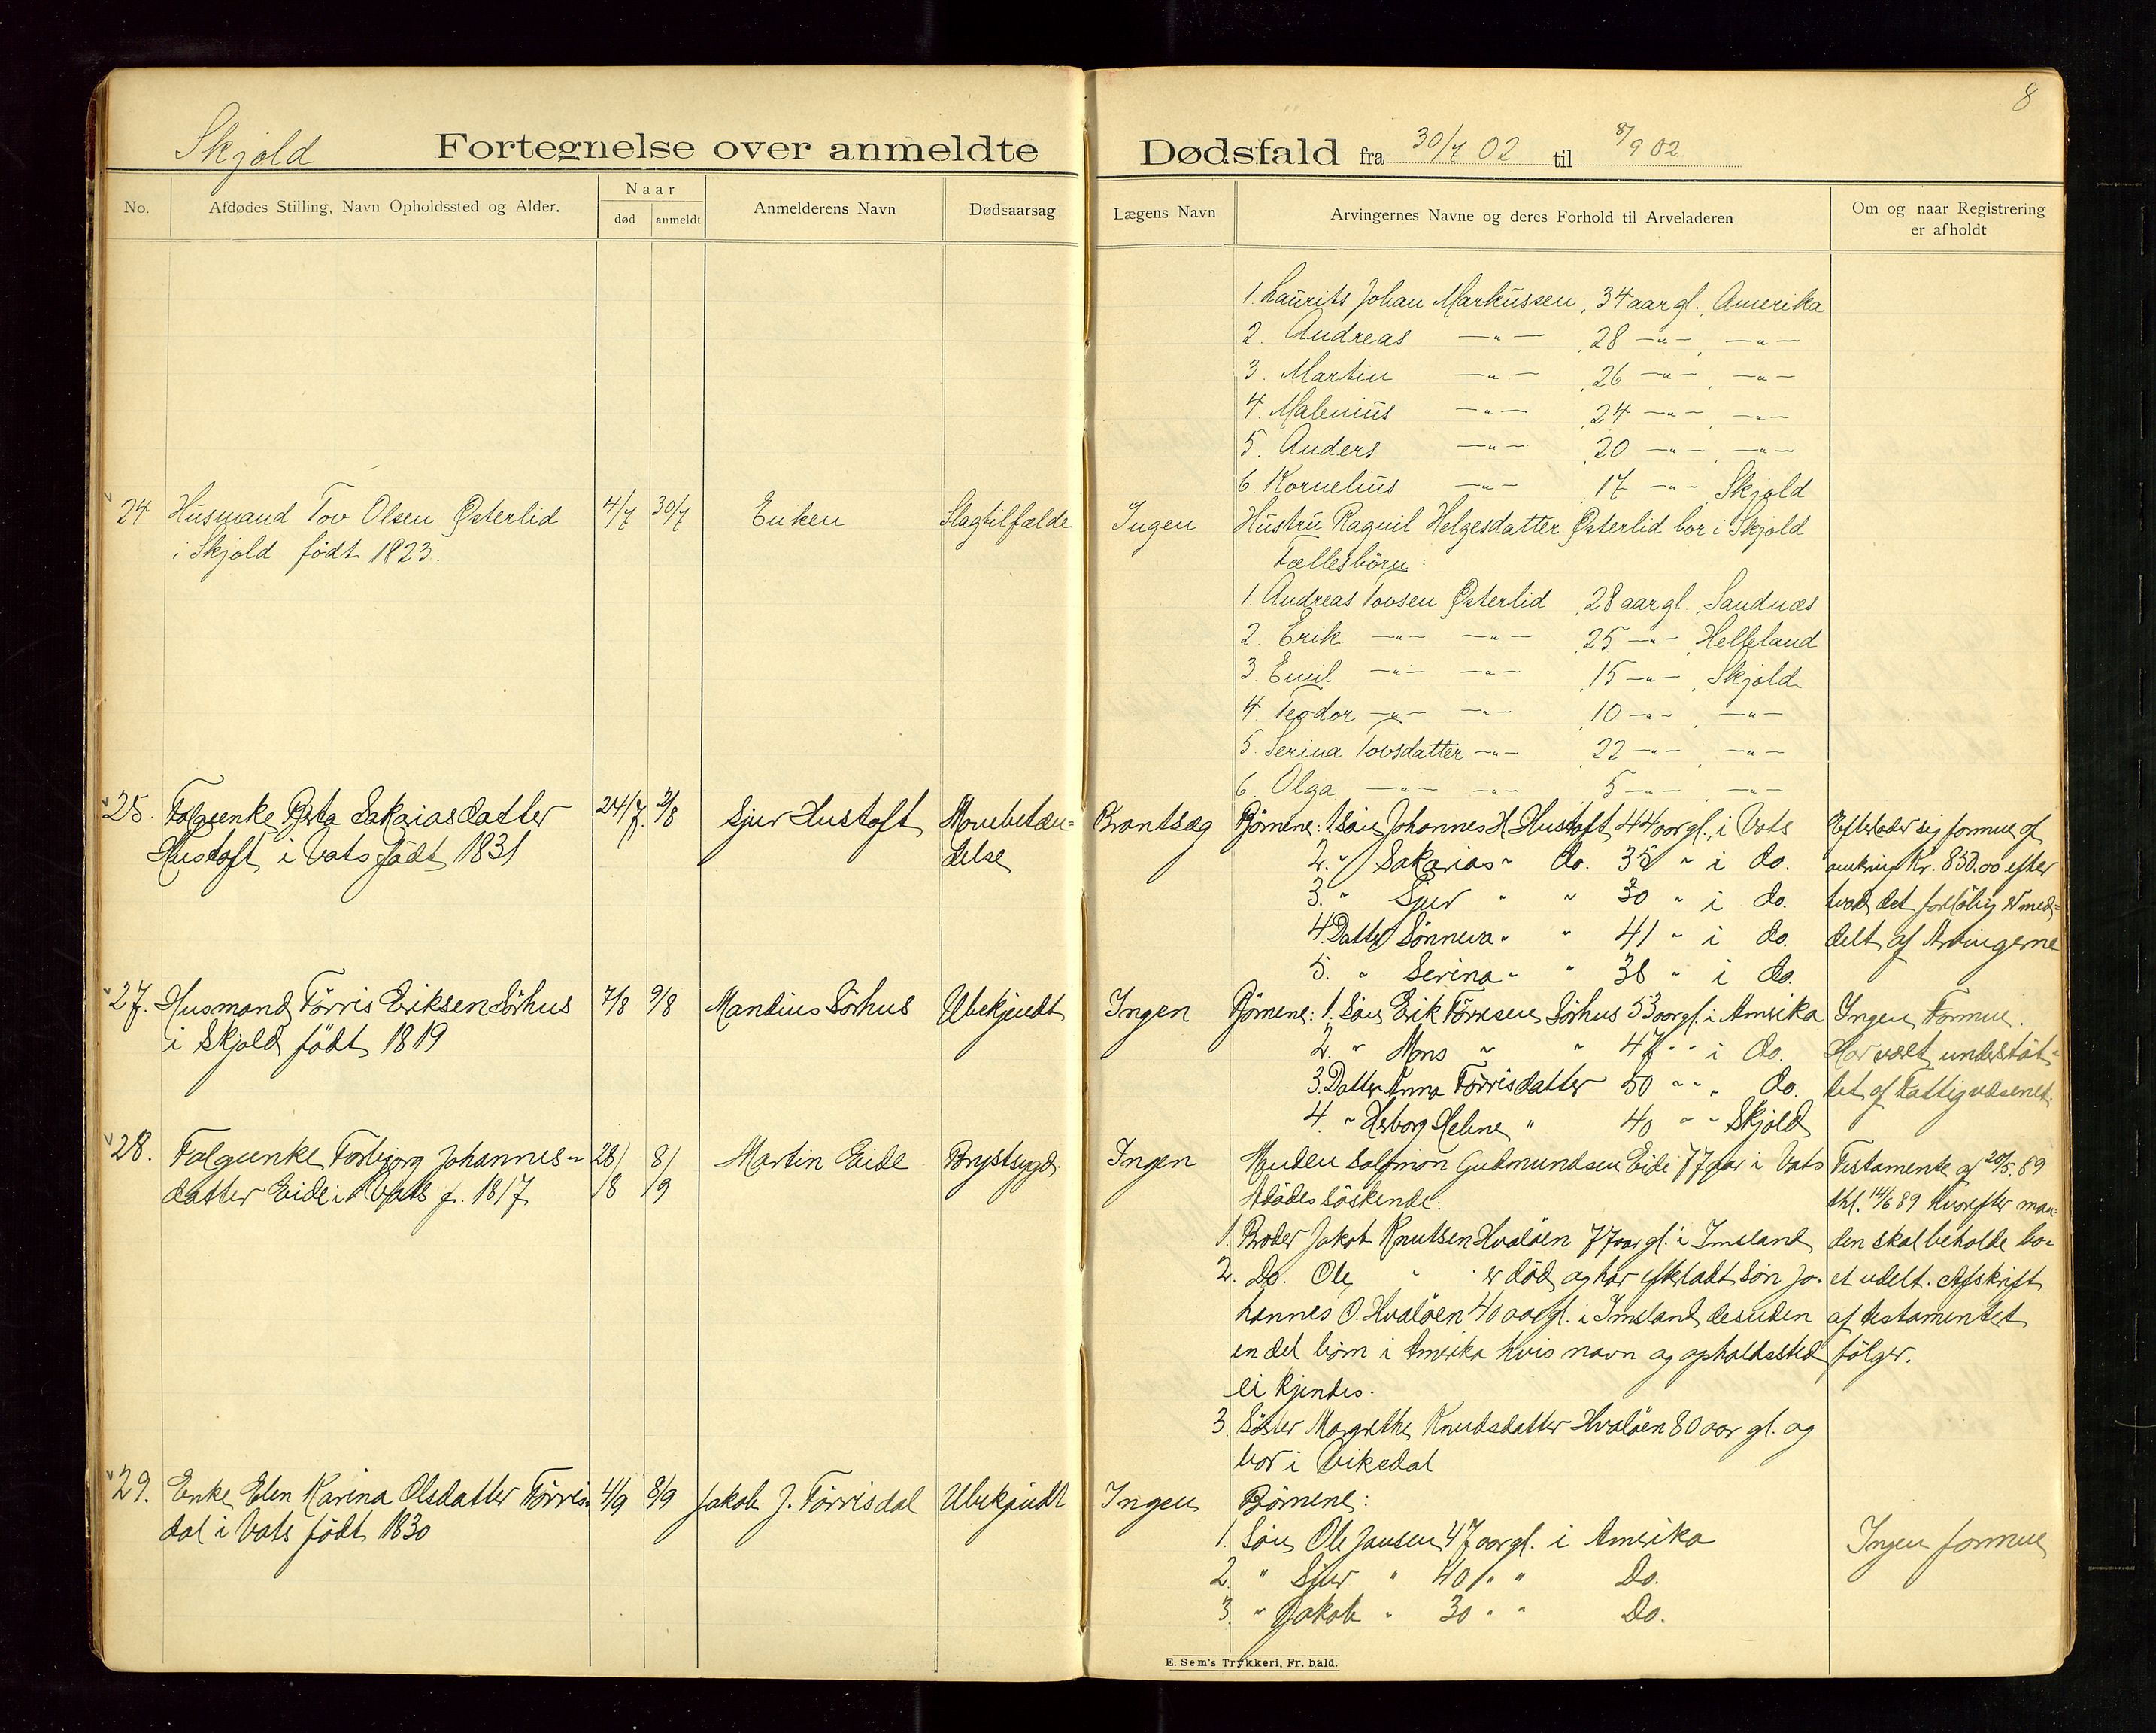 8
Skjold Fortegnelse over anmeldte Dødsfald fra 30/7 02 til 8/9 02.
No. Afdødes Stilling, Navn Opholdssted og Alder. Naar død anmeldt Anmelderens Navn Dødsaarsag Lægens Navn Arvingernes Navne og deres Forhold til Arveladeren Om og naar Registrering er afholdt
1. Laurits Johan Markussen, 34 aar gl., Amerika
2. Andreas —"— , 28 —"—, —"—
3. Martin —"— , 26 —"—, —"—
4. Malenius —"— , 24 —"—, —"—
5. Anders —"— , 20 —"—, —"—
6. Kornelius —"— , 17 —"—, Skjold
24 Husmand Tov Olsen Østerlid
i Skjold født 1823.
4/7 30/7 Enken Slagtilfælde Ingen
Hustru Ragnil Helgesdatter Østerlid bor i Skjold
Fællesbörn:
1. Andreas Tovsen Østerlid, 28 aar gl., Sandnæs
2. Erik —"— —"— , 25 —"—, Helleland
3. Emil —"— —"— , 15 —"—, Skjold
4. Teodor —"— —"— , 10 —"—, —"—
5. Serina Tovsdatter —"— , 22 —"—, —"—
6. Olga —"— —"— 5 —"—, —"—
25. Folgeenke Berta Sakariasdatter
Hustoft i Vats født 1831
24/7. 2/8 Sjur Hustoft
Mavebetæn-
delse
Brantsæg
Børnene: 1. Søn Johannes H. Hustoft 44 aar gl. i Vats
2. " Sakarias " do. 35 " i do.
3. " Sjur " " 30 " i do.
4. Datter Sønneva " " 41 " i do.
5. " Serina " " 38 " i do.
Efterlader sig formue af
omkring Kr. 850.00 efter
hvad det forløbig er med-
delt af Arvingerne
27. Husmand Tørris Eriksen Sørhus
i Skjold født 1819
7/8 9/8 Mandius Sørhus Ubekjendt Ingen
Børnene: 1. Søn Erik Tørresen Sørhus 53 aar gl. i Amerika
2. " Mons " " 47 " " i do.
3. Datter Anna Tørrisdatter 50 " " " do.
4. " Herborg Helene " 40 " " Skjold
Ingen Formue.
Har vært understøt-
tet af Fattigvæsenet.
28. Folgeenke Torbjorg Johannes-
datter Eide i Vats f. 1817
28/8 8/9 Martin Eide Brystsygd. Ingen
Manden Salomon Gudmundsen Eide 77 aar i Vats
Afdødes søskende:
1. Broder Jakob Knutsen Hvaløen 77 aar gl. i Imsland
2. Do. Ole " " er død og har efterladt Søn Jo-
hannes O. Hvaløen 40 aar gl. i Imsland desuden
en del børn i Amerika hvis navn og opholdssted
ei kjendes.
3. Søster Margrethe Knudsdatter Hvaløen 80 aar gl. og
bor i Vikedal
Testamente af 20/5. 89
thl. 14/6 89 hvorefter man-
den skal beholde bo-
et udelt. Afskrift
af testamentet
følger.
29. Enke Elen Karina Olsdatter Tørris-
dal i Vats født 1830
4/9 8/9 Jakob J. Tørrisdal Ubekjendt Ingen
Børnene:
1. Søn Ole Jansen 47 aar gl. i Amerika
2. " Sjur " 40 " " Do.
3. " Jakob " 30 " " Do.
Ingen formue
E. Sem's Trykkeri, Fr. hald.